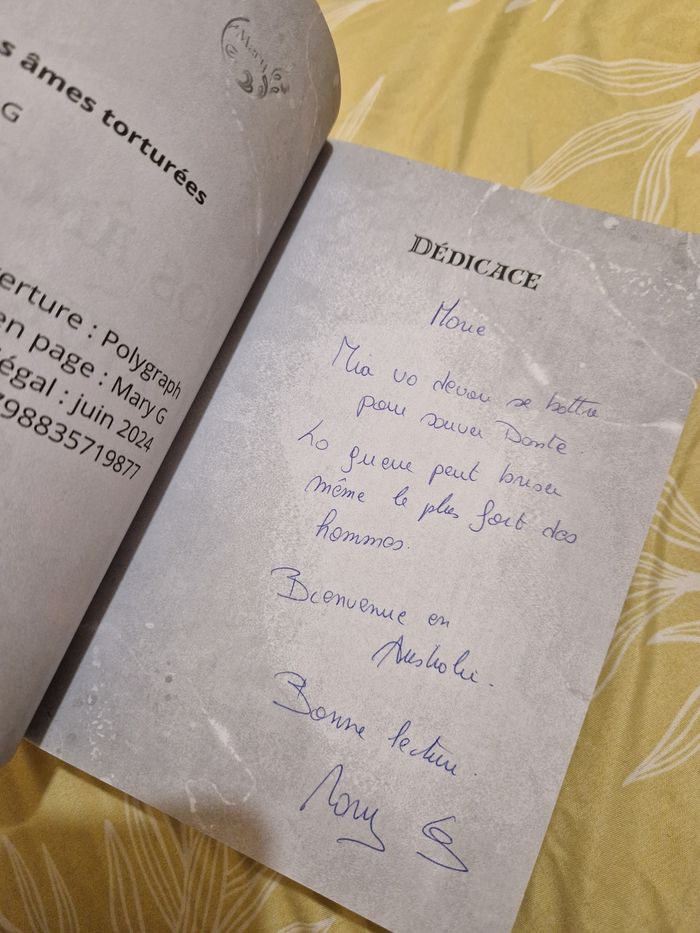 Mary
s âmes torturées
G
verture : Polygraph
en page : Mary G
égal : juin 2024
798835719877
DÉDICACE
Marie
Mia va devoir se battre
pour sauver Dante.
La guerre peut briser
même le plus fort des
hommes.
Bienvenue en
Australie.
Bonne lecture.
Mary G